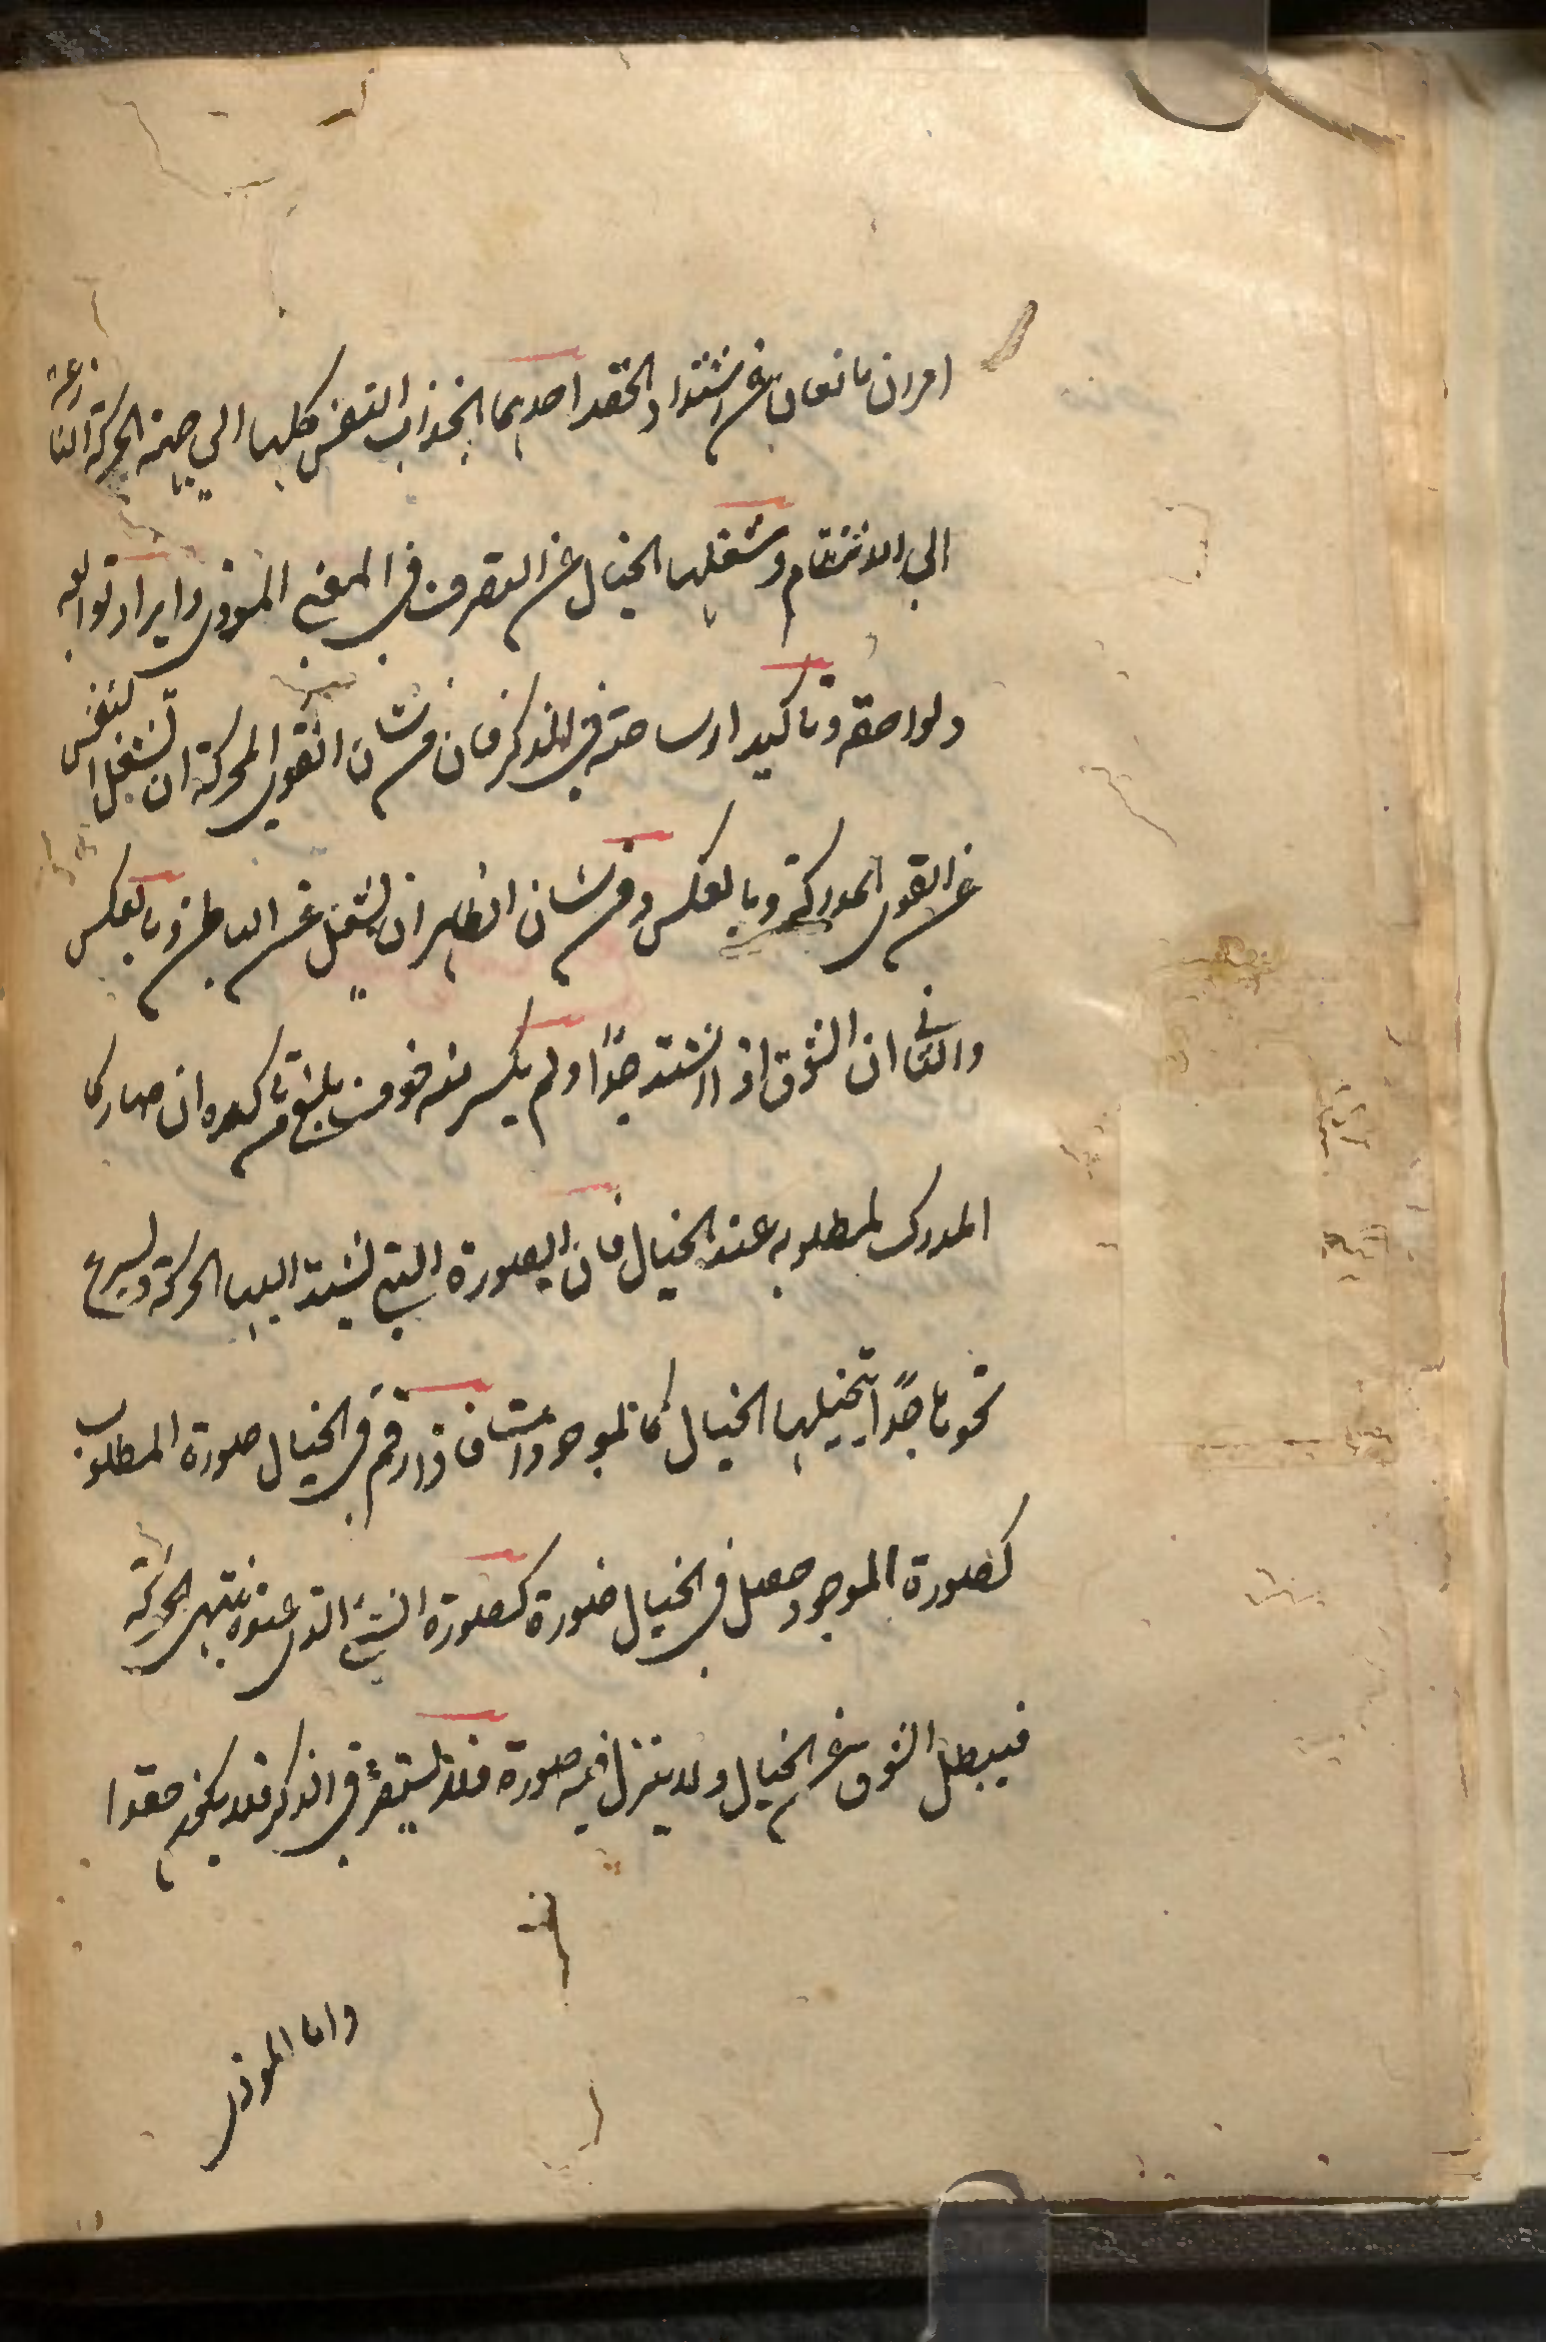 امران مانعان عن اشتداد الحقد احدهما انجذاب النفس كلها الي جهة الحركة النازعة
الي الانتقام وشغلها الخيال عن التصرف في المعني الموذي وايراد توابعه
ولواحقه وتاكيد ارساخه في الذكر فان من شان القوي المحركة ان تشغل النفس
عن القوي المدركة وبالعكس ومن شان الظاهر ان يشغل عن الباطن وبالعكس
والثاني ان الشوق اذا اشتد جدًا ولم يكسر منه خوف بلغ من تاكده ان صار كا
المدرك لمطلوبه عند الخيال فان الصورة التي تشتد اليها الحركة وتسرع
نحوها جدًا يتخيلها الخيال كالموجودات فاذا رقم في الخيال صورة المطلوب
كصورة الموجود حصل في الخيال صورة كصورة الشيء الذي عنده تنتهي الحركة
فيبطل الشوق عن الخيال ولا ينزل فيه صورة فلا تستقر في الذكر فلا يكون حقدا
واما الموذي